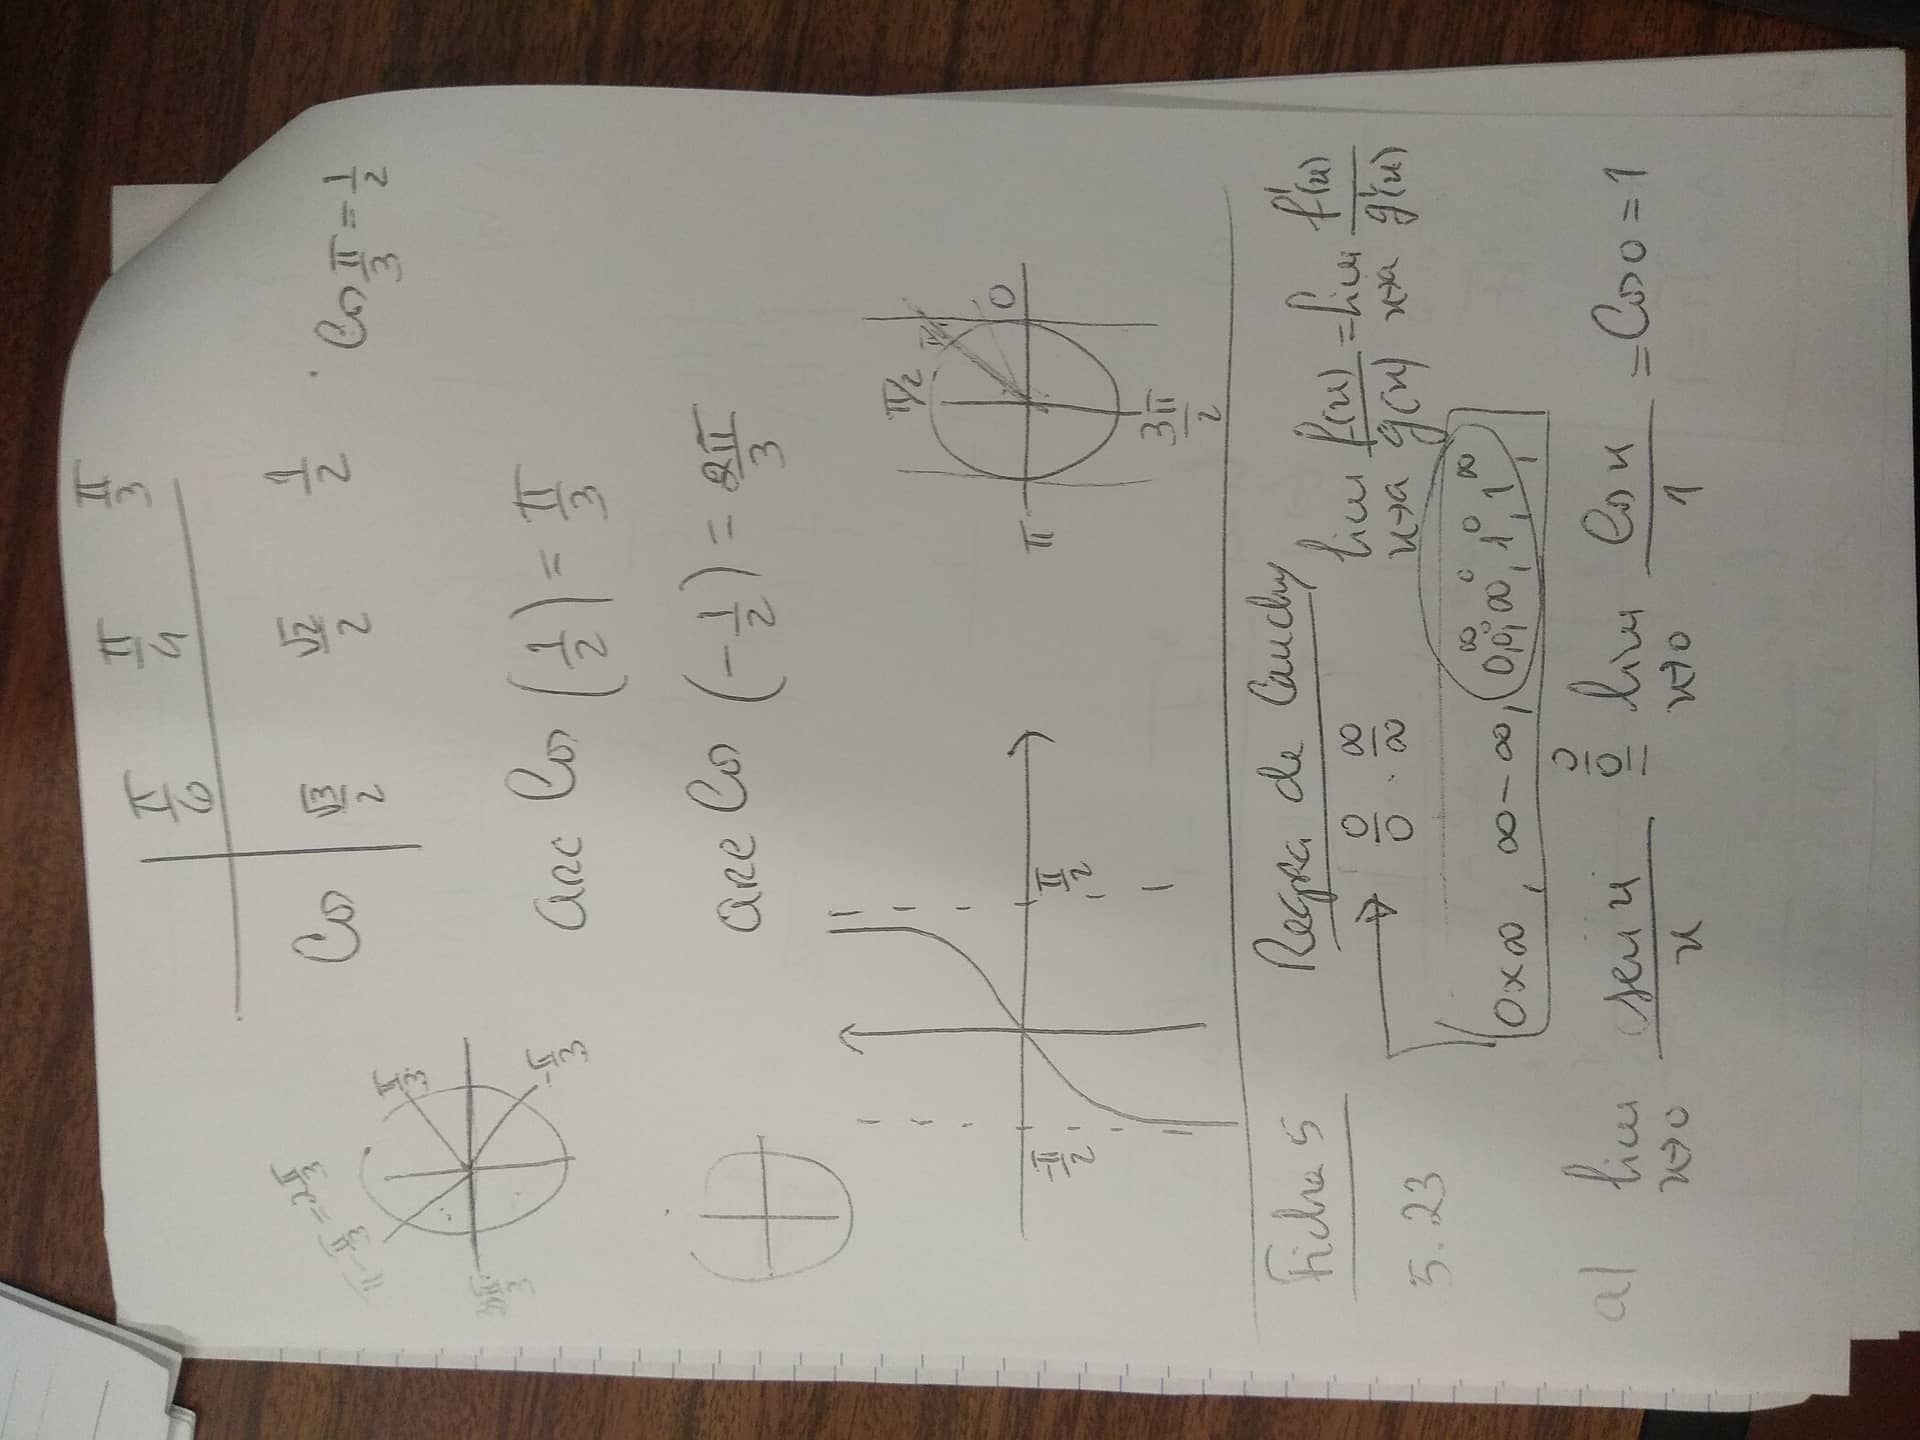 π/6 π/4 π/3
Cos √3/2 √2/2 1/2
Cos π/3 = 1/2
π - π/3 = 2π/3
π/3
-π/3
arc Cos (1/2) = π/3
arc Cos (-1/2) = 2π/3
-π/2 π/2
π/2
π 0
3π/2
Ficha 5 Regra de Cauchy
0/0 . ∞/∞ lim x→a f(x)/g(x) = lim x→a f'(x)/g'(x)
5.23
0×∞, ∞-∞, 0^∞, 0^0, ∞^0, 1^0, 1^∞,
a) lim x→0 sen x / x =(0/0) lim x→0 Cos x / 1 = Cos 0 = 1